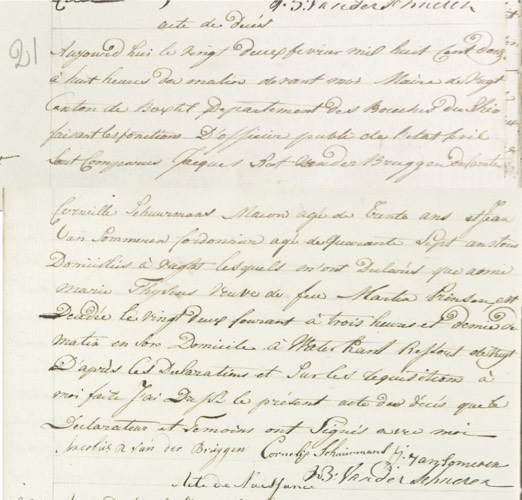 J. B. Van der Schueren
acte de Decés
21
Aujourd hui le vingt deux fevrier mil huit Cent douze
à huit heures du matin devant moi Maire de Vugt
Canton de Boxtel Departement des Bouches du Rhin
faisant les fonctions D'officier public de l'etat civil
Sont Comparus Jacques Van der Bruggen
Corneille Schuurmans Macon agé de trente ans et Jean
Van Sommeren Cordonnier agé de Quarante Sept ans tous
Domiciliés à Vught lesquels m'ont Declarés que
marie Veuve de feu Martin est
Decedée le vingt deux Courant à trois heures et demie de
matin en son Domicile à Ressort de Vugt
D'après les Declarations et Sur les requisitions à
moi faite J'ai le présent acte de Decés que le
Declarateur et temoins ont Signés avec moi
Jacobus A Van der Bruggen Cornelis Schuurmans J. van Someren
J. B. Van der Schueren
Acte de Naissance